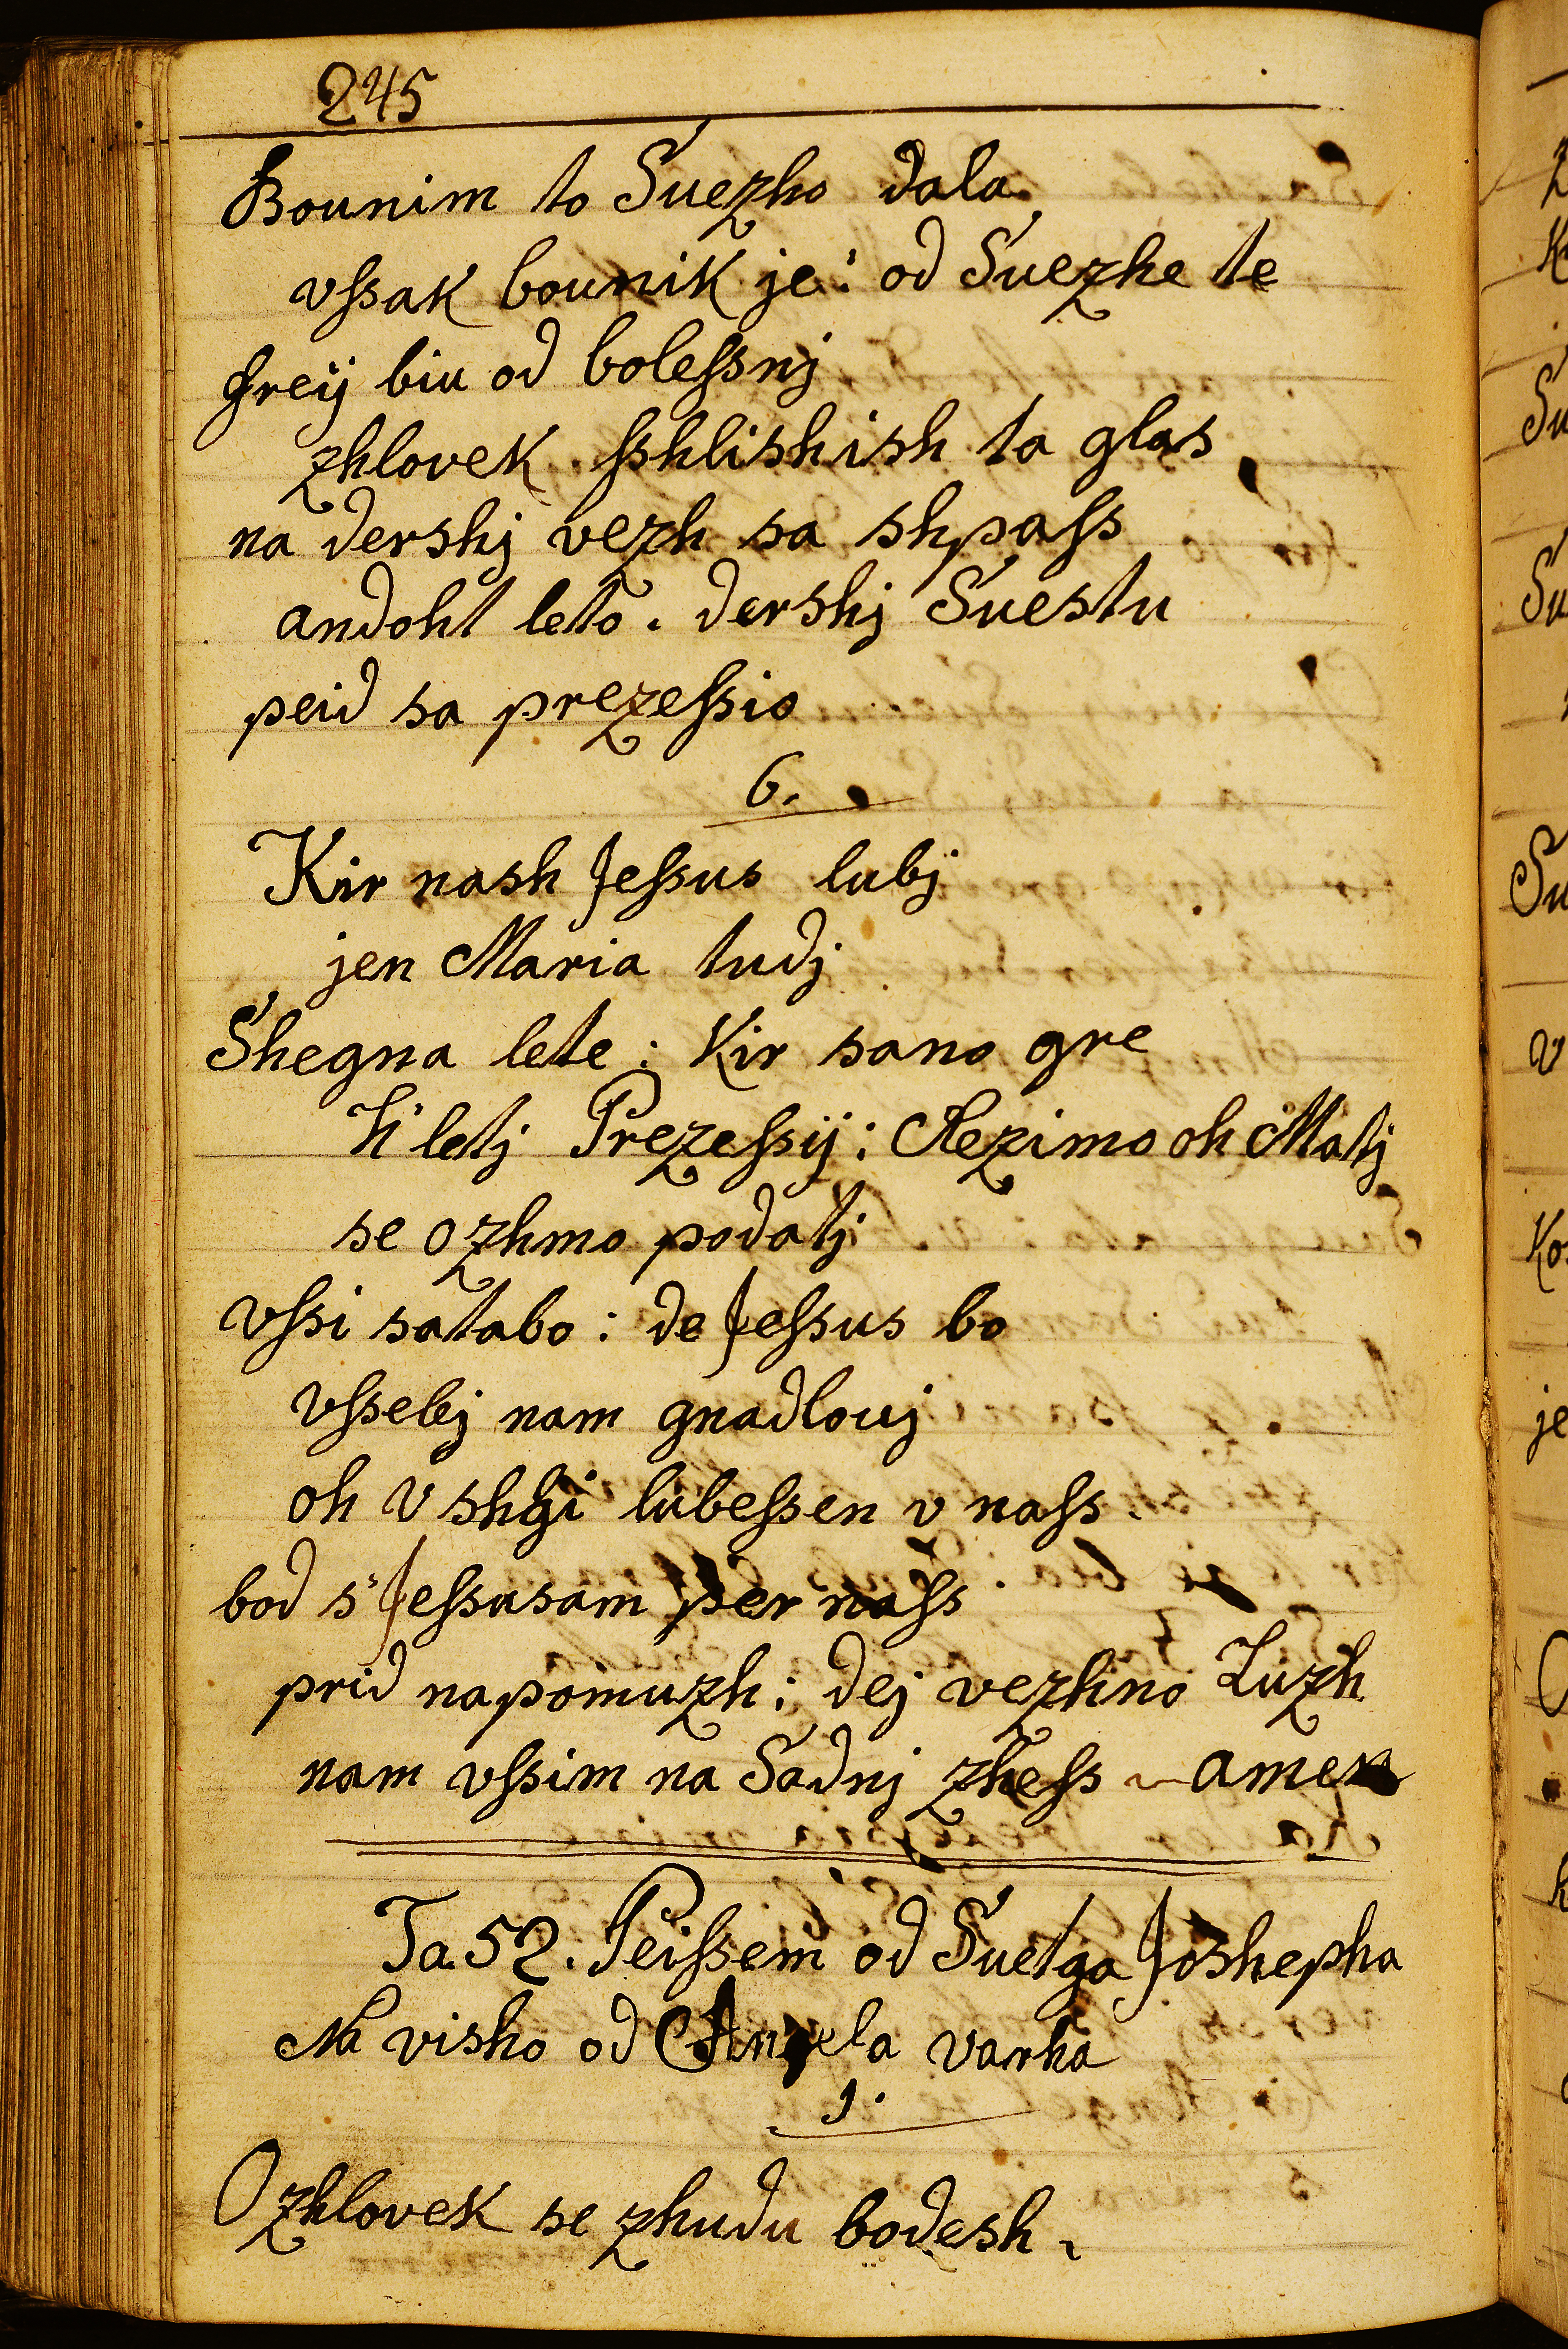 245
Bounim to Suezho dala
vſsak bounik je: od Suezhe te
freij biu od boleſsnj
zhlovek ſshlishish ta glas
na dershj vezh sa shpaſs
andoht leto. dershj Suestu
peid sa prezeſsio
6.
Kir nash Jeſsus lubj
jen Maria tudj
Shegna lete: Kir sano gre
K'letj Prezeſsij: Rezimo oh Matj
se ozhmo podatj
vſsi satabo: de Jeſsus bo
vſselej nam gnadlouj
oh v shgi lubeſsen v naſs
bod s'Jeſsusam per naſs
prid napomuzh: dej vezhno Luzh
nam vſsim na Sadnj zheſs amen
Ta 52. Peiſsem od Suetga Joshepha
Na visho od Angela varha
1.
O zhlovek se zhudu bodesh.